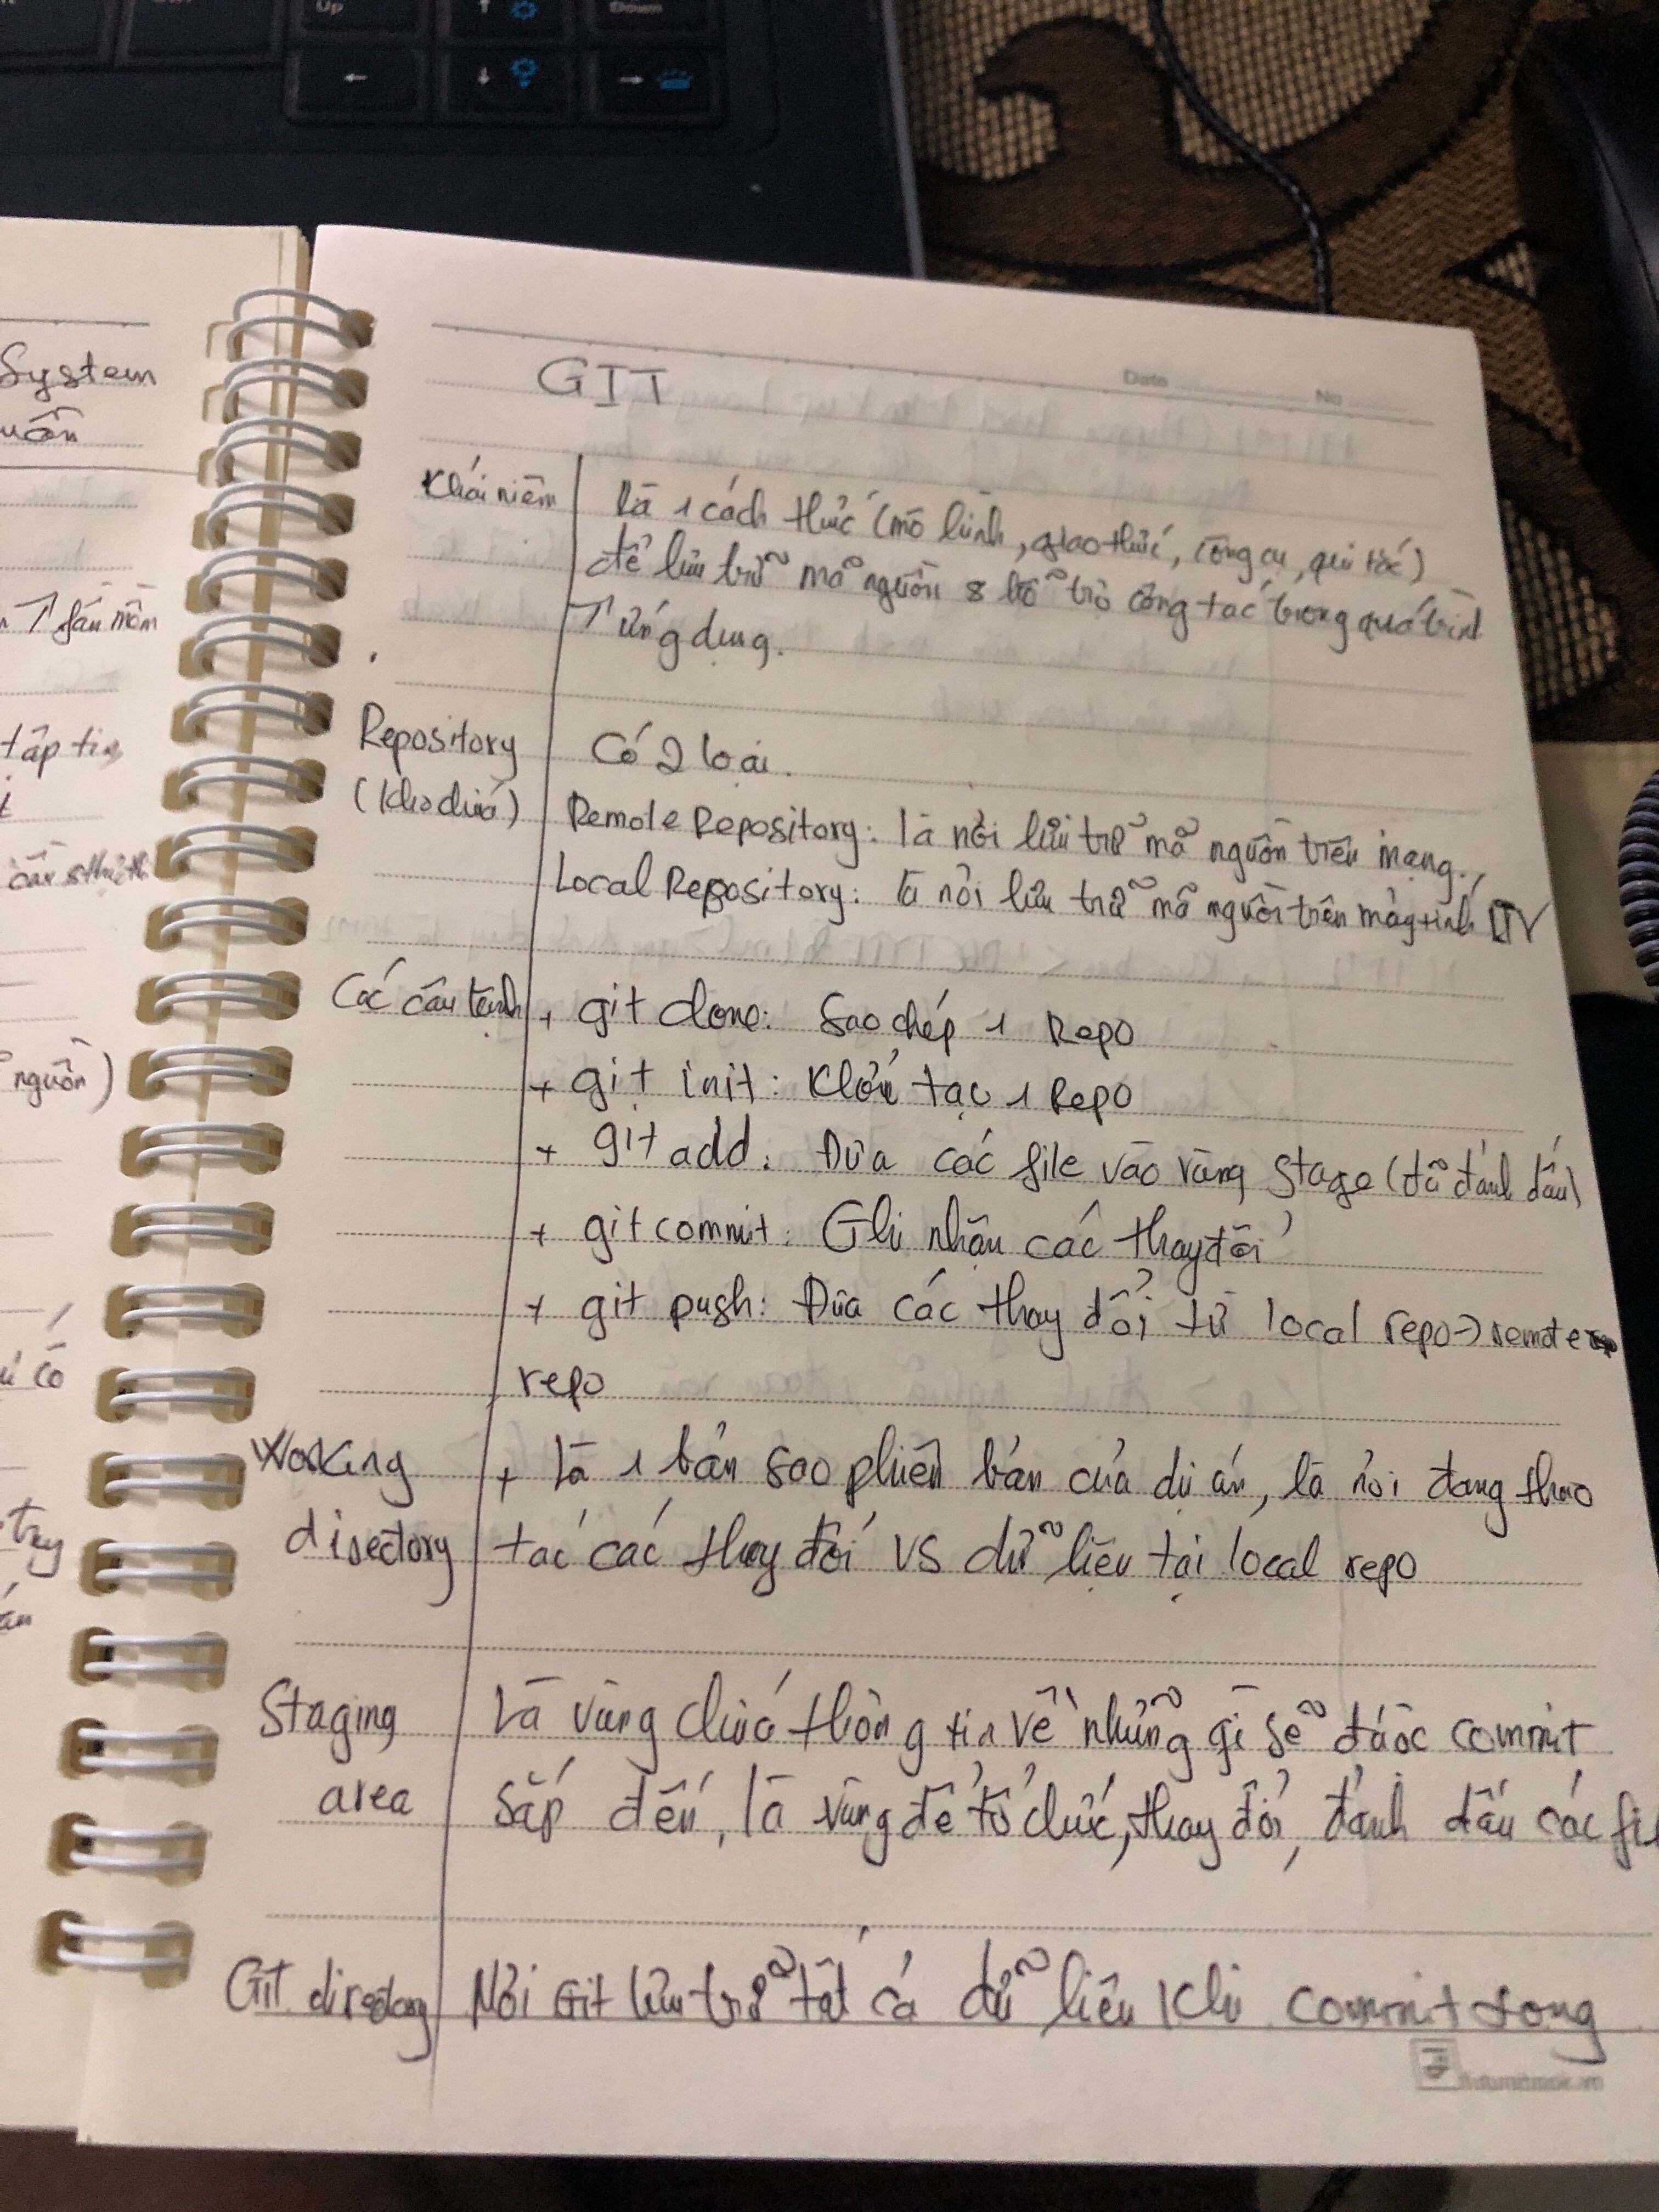 Up
Down
System
GIT
Date
No
Khái niệm
Là 1 cách thức (mô hình, giao thức, công cụ, qui tắc)
để lưu trữ mã nguồn & hỗ trợ công tác trong quá trình
↑ ứng dụng.
tập tin
Repository
Có 2 loại.
(kho chứa)
Remote Repository: là nơi lưu trữ mã nguồn trên mạng.
Local Repository: là nơi lưu trữ mã nguồn trên máy tính LTV
nguồn)
Các câu lệnh
+ git clone: Sao chép 1 Repo
+ git init: Khởi tạo 1 Repo
+ git add: Đưa các file vào vùng Stage (đã đánh dấu)
+ git commit: Ghi nhận các thay đổi
+ git push: Đưa các thay đổi từ local repo → remote
repo
có
Working
directory
+ Là 1 bản sao phiên bản của dự án, là nơi đang thao
tác các thay đổi vs dữ liệu tại local repo
Staging
area
Là vùng chứa thông tin về những gì sẽ được commit
sắp đến, là vùng để tổ chức, thay đổi, đánh dấu các
Git directory
Nơi Git lưu trữ tất cả dữ liệu khi commit song